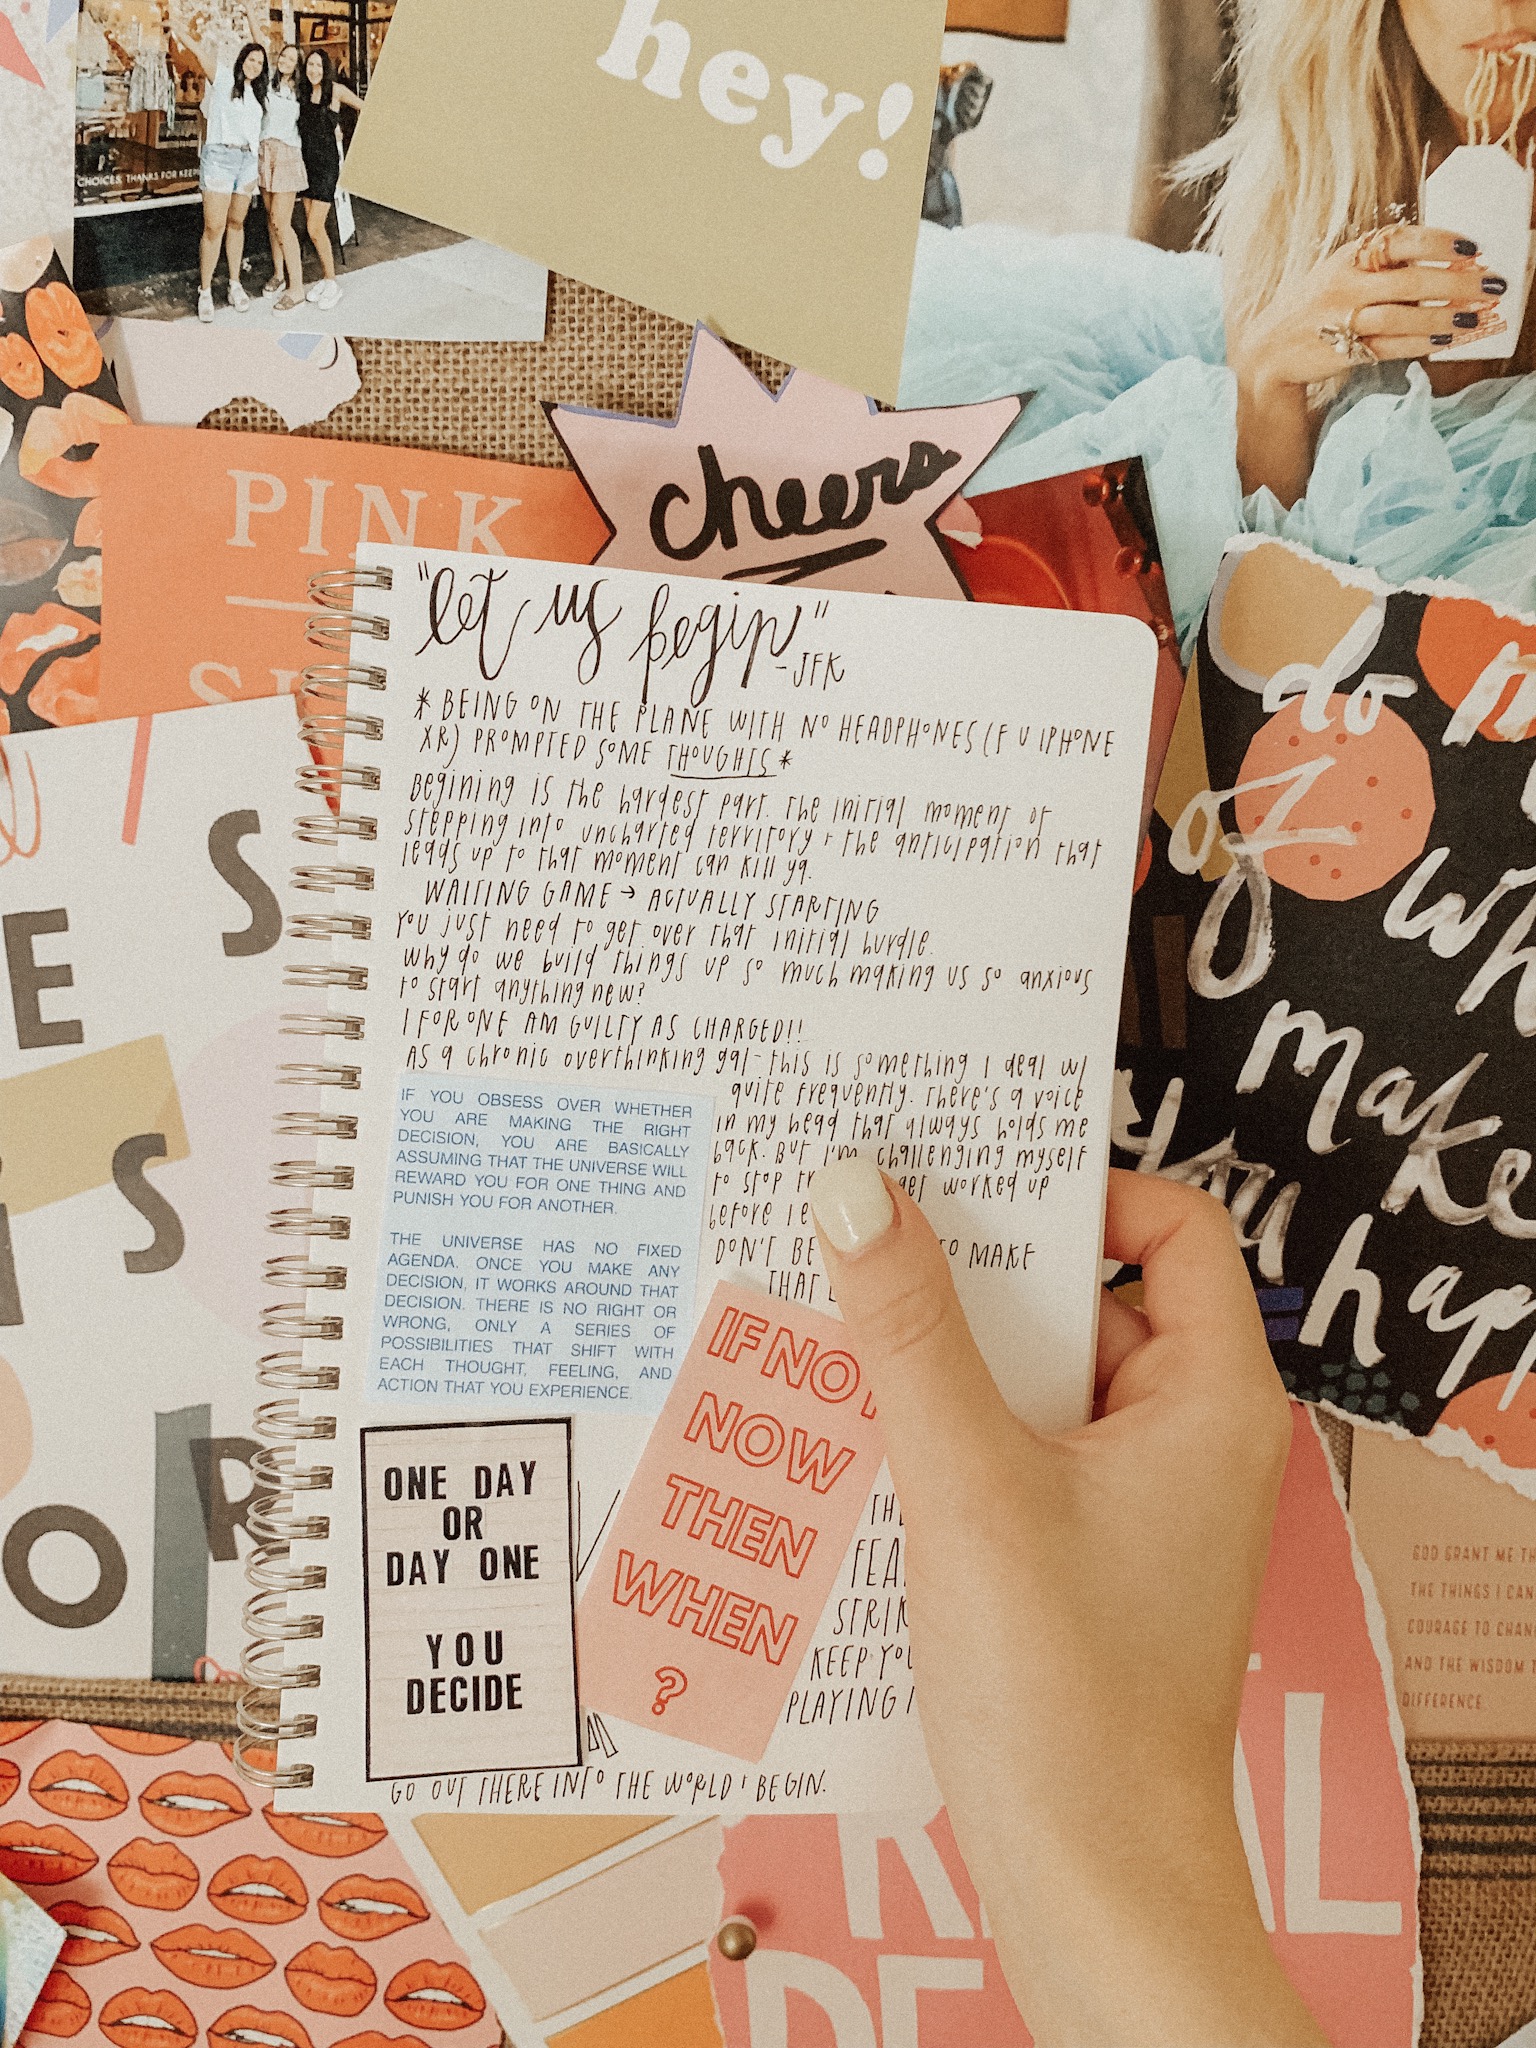 hey!
CHOICES. THANKS FOR
cheers
PINK
"let us begin"
-JFK
* BEING ON THE PLANE WITH NO HEADPHONES (F U IPHONE
XR) PROMPTED SOME THOUGHTS *
Begining is the hardest part. the initial moment of
stepping into uncharted territory + the anticipation that
leads up to that moment can kill ya.
WAITING GAME → ACTUALLY STARTING
You just need to get over that initial hurdle.
why do we build things up so much making us so anxious
to start anything new?
I FOR ONE AM GUILTY AS CHARGED!!
As a chronic overthinking gal - this is something I deal w/
quite frequently. There's a voice
in my head that always holds me
back. But I'm challenging myself
to stop get worked up
before
DON'T BE TO MAKE
THAT
IF YOU OBSESS OVER WHETHER
YOU ARE MAKING THE RIGHT
DECISION, YOU ARE BASICALLY
ASSUMING THAT THE UNIVERSE WILL
REWARD YOU FOR ONE THING AND
PUNISH YOU FOR ANOTHER.
THE UNIVERSE HAS NO FIXED
AGENDA. ONCE YOU MAKE ANY
DECISION, IT WORKS AROUND THAT
DECISION. THERE IS NO RIGHT OR
WRONG, ONLY A SERIES OF
POSSIBILITIES THAT SHIFT WITH
EACH THOUGHT, FEELING, AND
ACTION THAT YOU EXPERIENCE.
IF NOT
NOW
THEN
WHEN
?
ONE DAY
OR
DAY ONE
YOU
DECIDE
KEEP
PLAYING
GO OUT THERE INTO THE WORLD + BEGIN.
E S
S
O R
do
of
make
you
GOD GRANT ME
THE THINGS I CAN
COURAGE TO
AND THE WISDOM
DIFFERENCE.